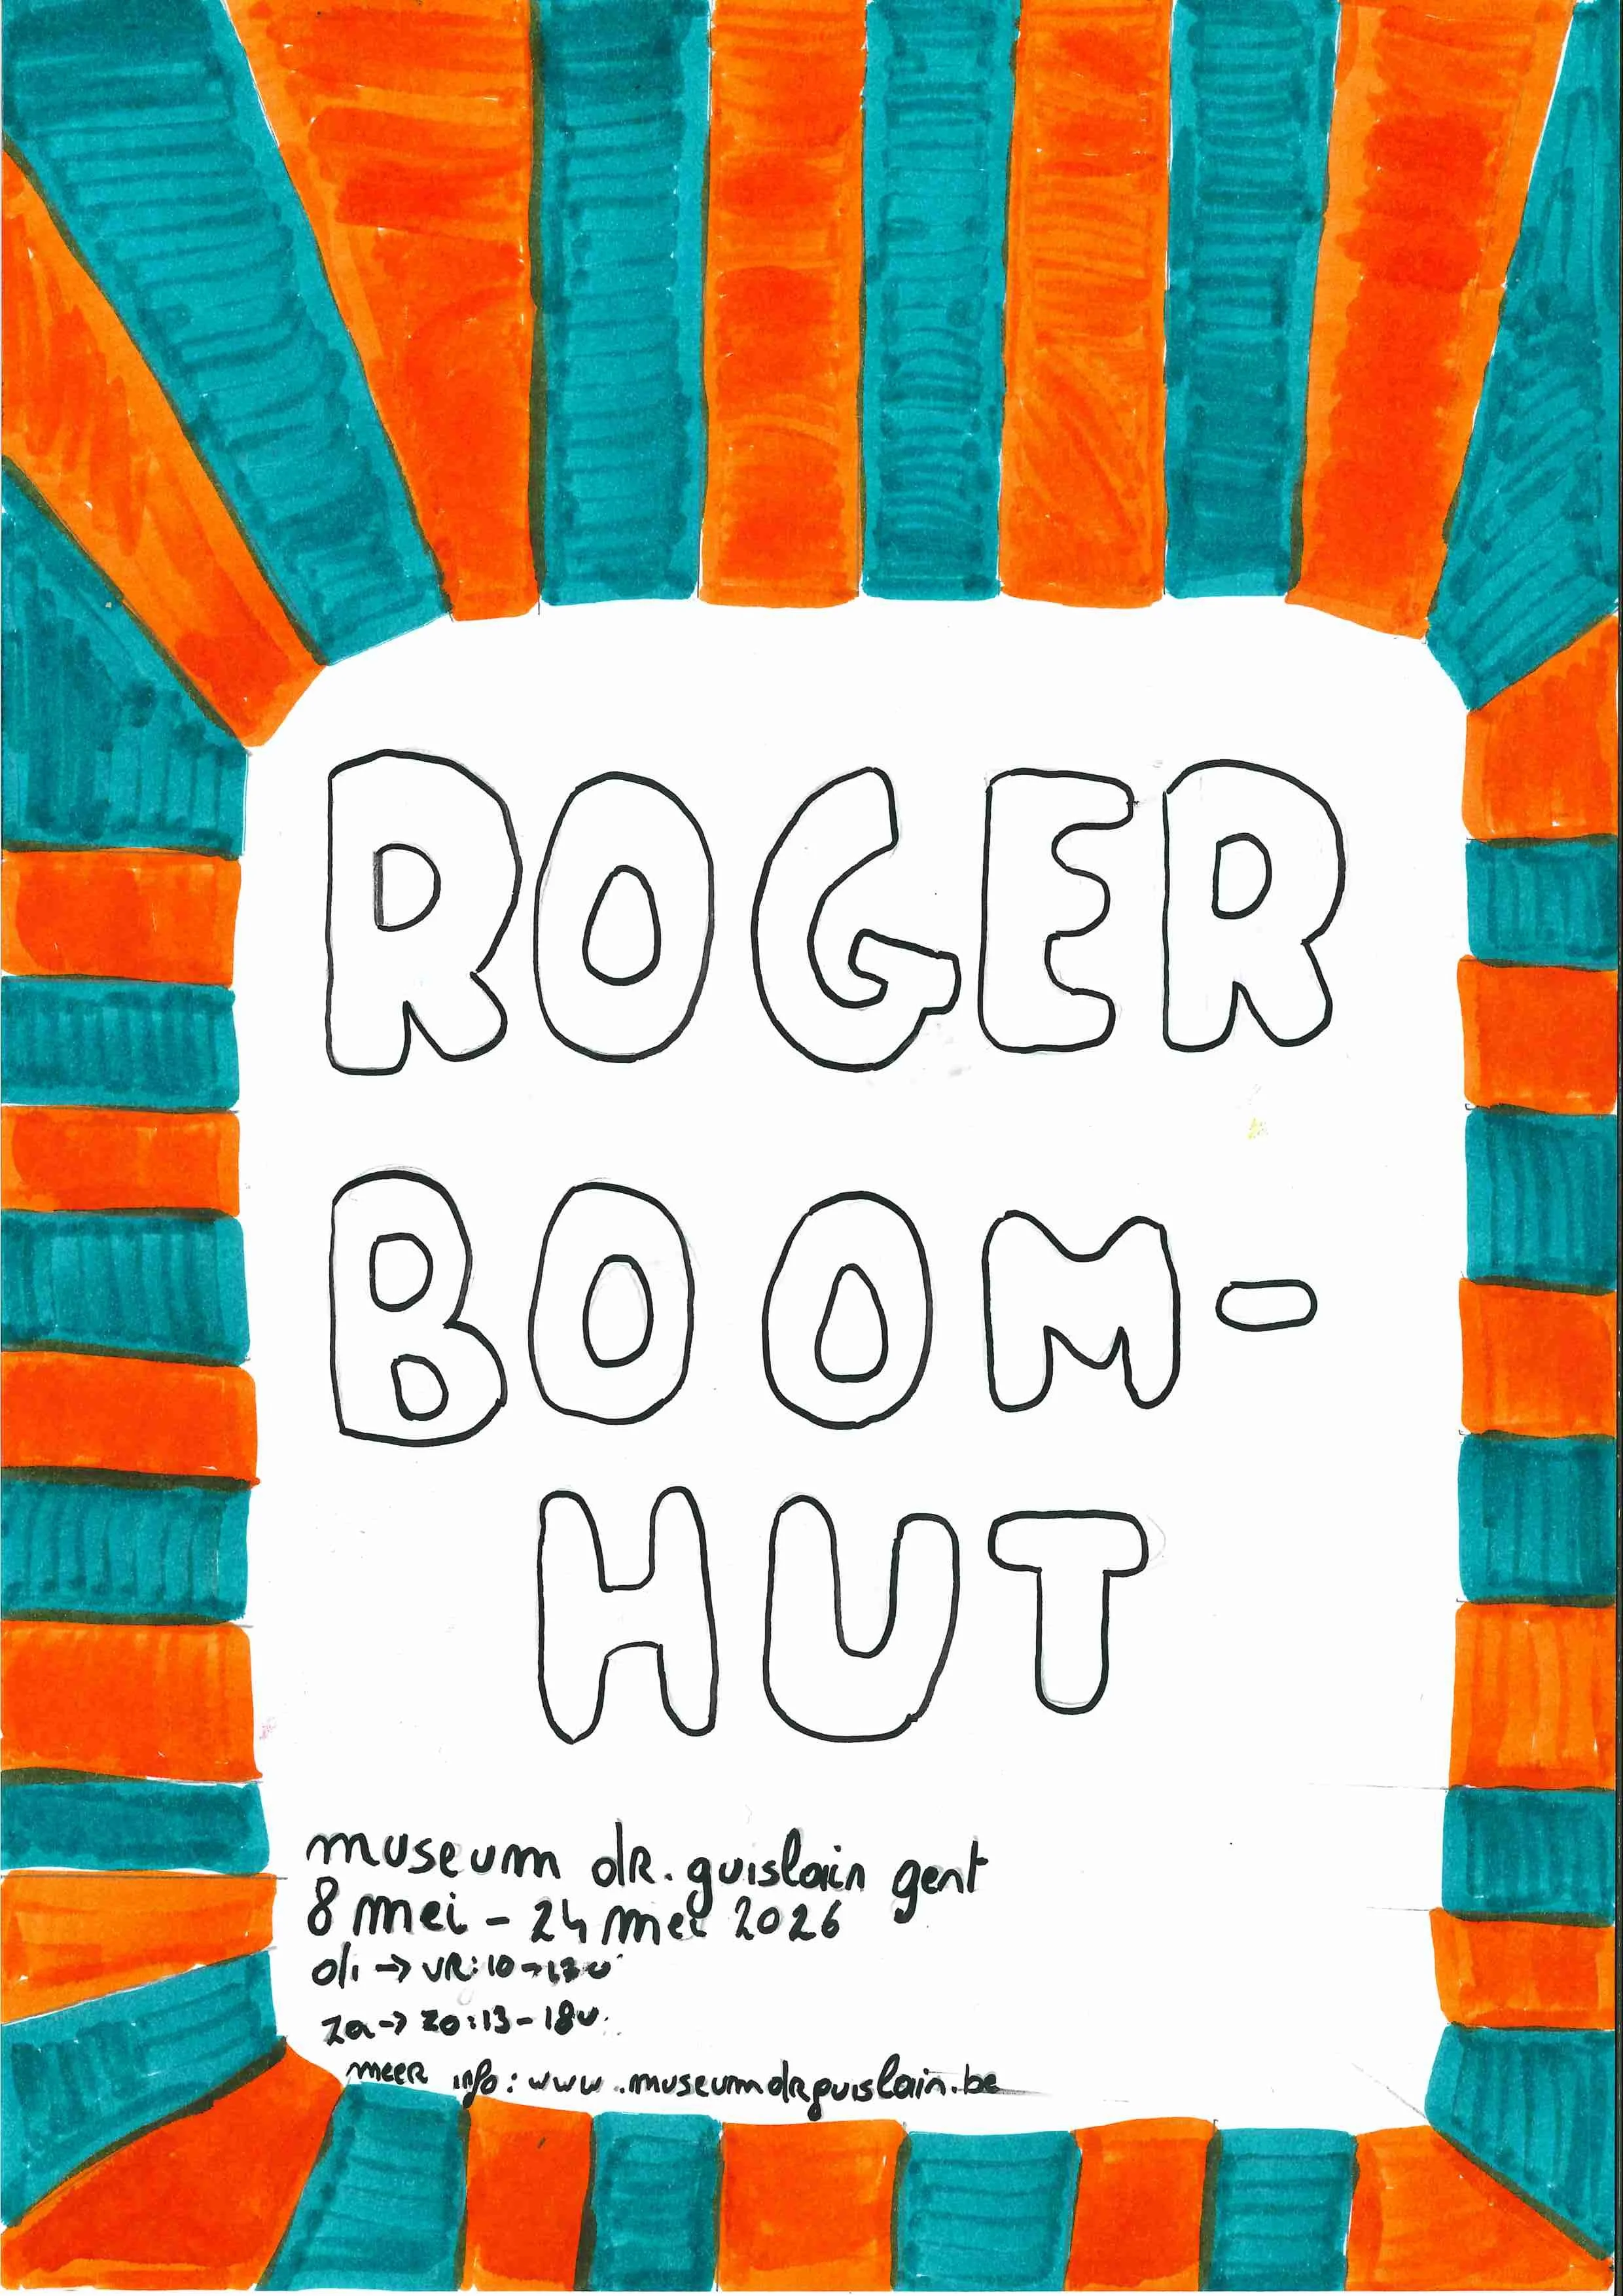 ROGER
BOOM-
HUT
museum dR. guislain gent
8 mei - 24 mei 2026
di → VR: 10 - 17u
za → zo: 13 - 18u.
meeR info: www.museumdrguislain.be